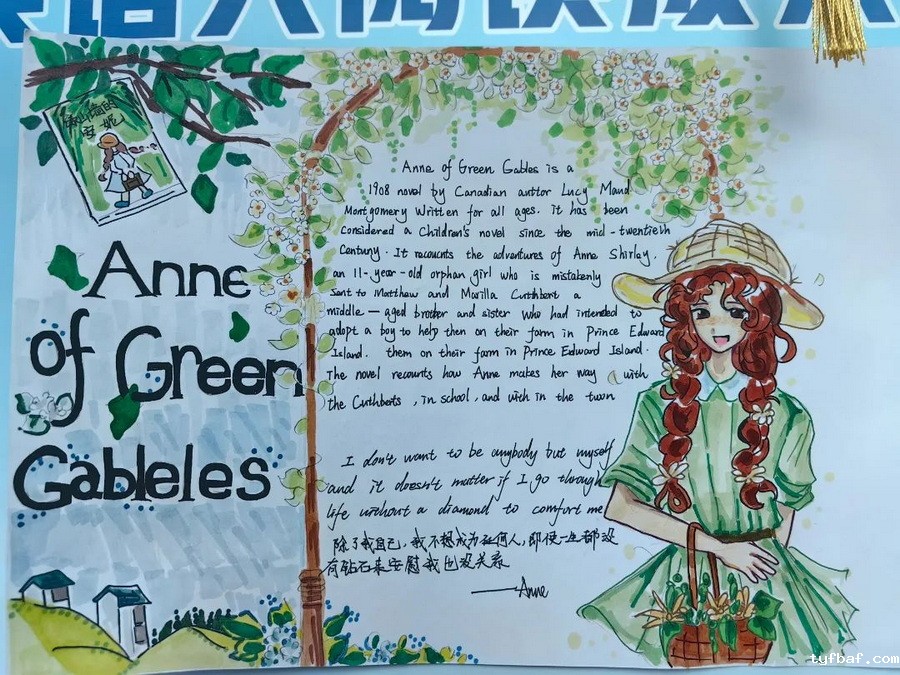 绿山墙的
安妮
Anne
of Green
Gableles
Anne of Green Gables is a
1908 novel by Canadian author Lucy Maud
Montgomery Written for all ages. it has been
Considered a Children's novel since the mid-twentieth
Century. It recounts the adventures of Anne Shirley.
an 11-year-old orphan girl who is mistakenly
sent to Matthew and Marilla Cuthbert a
middle-aged brother and sister who had intended to
adopt a boy to help then on their farm in Prince Edward
Island. them on their farm in Prince Edward Island.
The novel recounts how Anne makes her way with
the Cuthberts, in school, and with in the town
I don't want to be anybody but myself
and it doesn't matter if I go through
life without a diamond to comfort me
除了我自己,我不想成为任何人,即使一生都没
有钻石来安慰我也没关系
——Anne
tyfbaf.com